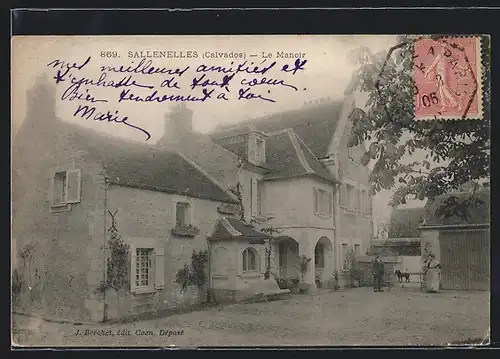 869. SALLENELLES (Calvados) — Le Manoir
mes meilleures amitiés et
t'embrasse de tout cœur
Bien tendrement à toi
Marie
PARIS
05
J. Bréchet, édit. Caen. Déposé